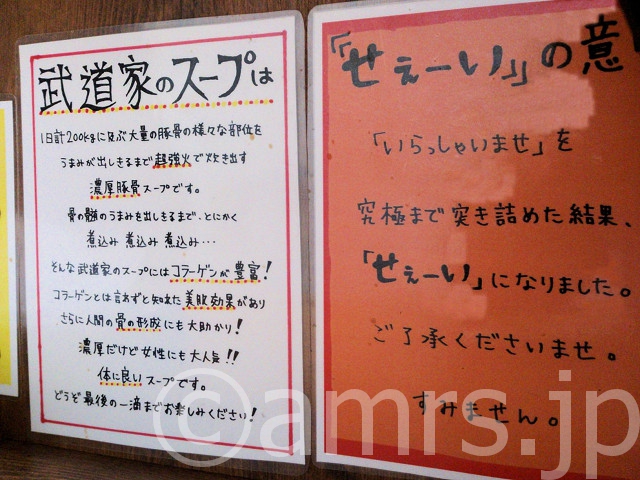 武道家のスープは
1日計200kgに及ぶ大量の豚骨の様々な部位を
うまみが出しきるまで超強火で炊き出す
濃厚豚骨スープです。
骨の髄のうまみを出しきるまで、とにかく
煮込み 煮込み 煮込み…
そんな武道家のスープにはコラーゲンが豊富！
コラーゲンとは言わずと知れた美肌効果があり
さらに人間の骨の形成にも大助かり！
濃厚だけど女性にも大人気!!
体に良いスープです。
どうぞ最後の一滴までお楽しみください！
『「せぇーい」』の意
「いらっしゃいませ」を
究極まで突き詰めた結果、
「せぇーい」になりました。
ご了承くださいませ。
すみません。
©amrs.jp